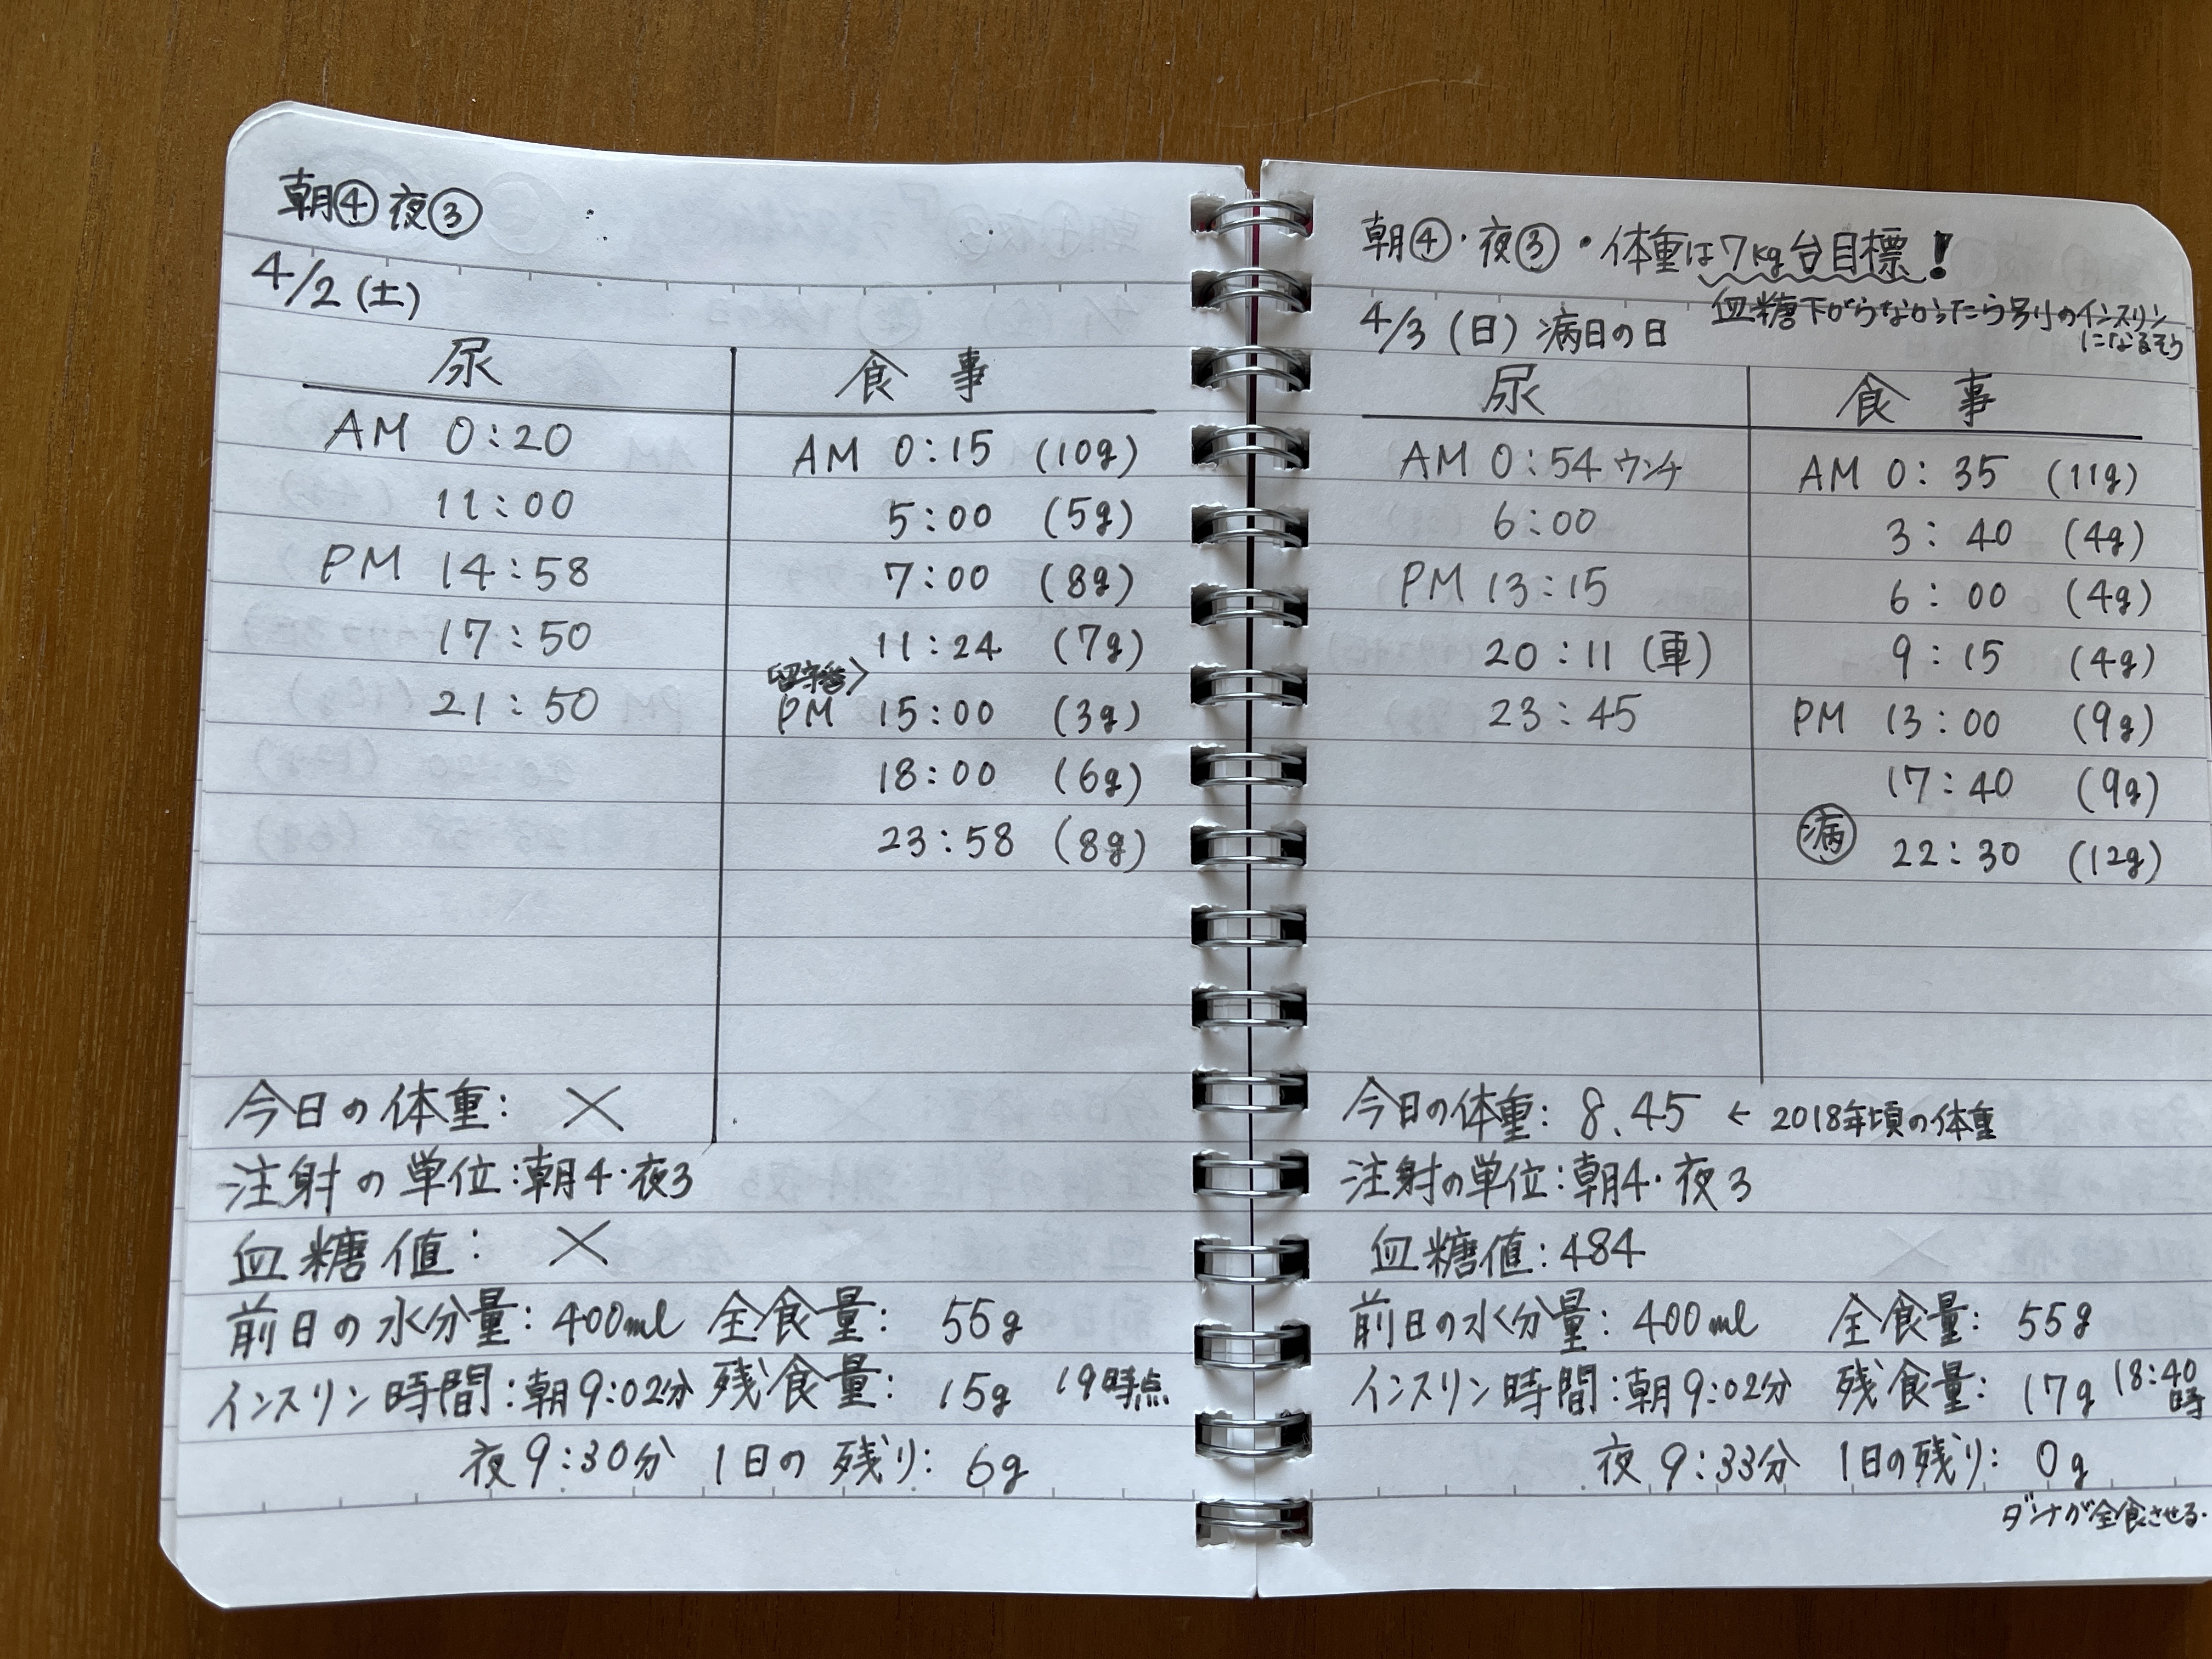 朝④夜③
4/2(土)
尿 食事
AM 0:20 AM 0:15 (10g)
11:00 5:00 (5g)
PM 14:58 7:00 (8g)
17:50 11:24 (7g)
留守番>
21:50 PM 15:00 (3g)
18:00 (6g)
23:58 (8g)
今日の体重: ×
注射の単位:朝4・夜3
血糖値: ×
前日の水分量:400ml 全食量: 55g
インスリン時間:朝9:02分 残食量: 15g 19時点
夜9:30分 1日の残り: 6g
朝④・夜③・体重は7kg台目標!
血糖下がらなかったら別のインスリン
になるそう
4/3 (日) 病日の日
尿 食事
AM 0:54 ウンチ AM 0:35 (11g)
6:00 3:40 (4g)
PM 13:15 6:00 (4g)
20:11 (車) 9:15 (4g)
23:45 PM 13:00 (9g)
17:40 (9g)
病 22:30 (12g)
今日の体重: 8.45 ← 2018年頃の体重
注射の単位:朝4・夜3
血糖値:484
前日の水分量:400ml 全食量: 55g
インスリン時間:朝9:02分 残食量: 17g 18:40時
夜9:33分 1日の残り: 0g
ダンナが全食させる.